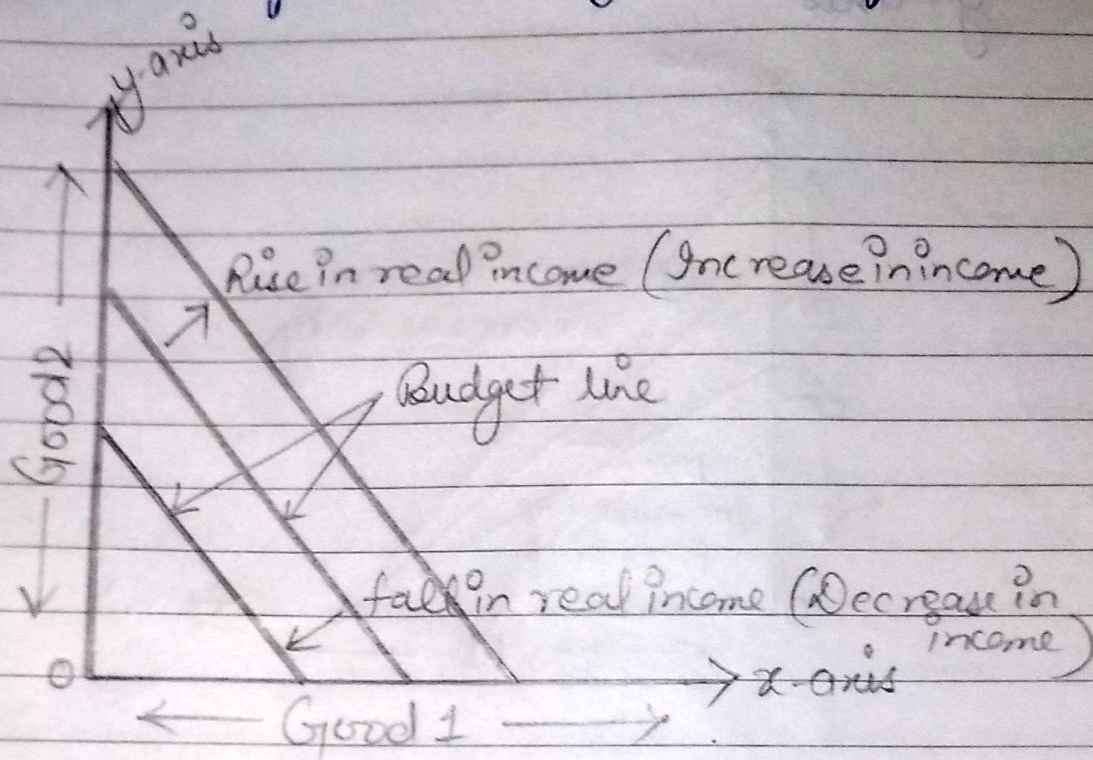 y-axis
Rise in real income (Increase in income)
Good 2
Budget line
fall in real income (Decrease in
income)
O
x-axis
Good 1